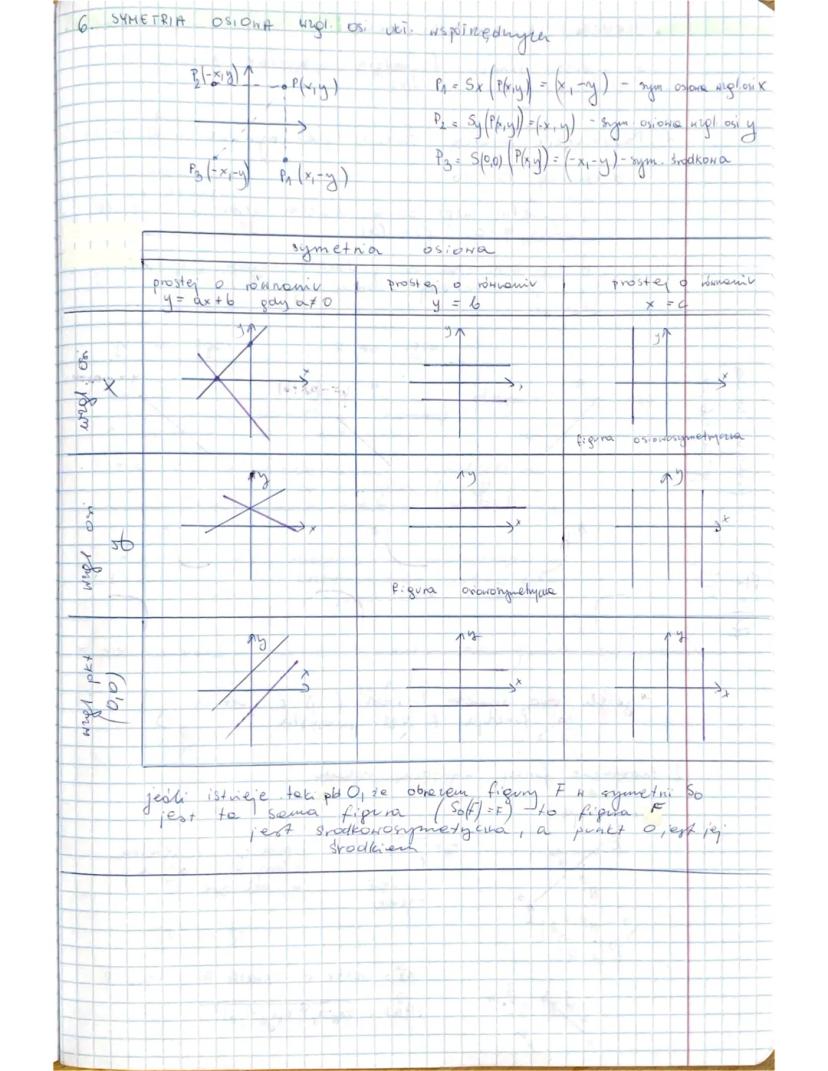 6. SYMETRIA OSIOWA wzgl. osi ukł. współrzędnych
P₂(-x,y)
P(x,y)
P₃(-x,-y)
P₁(x,-y)
P₁ = Sx (P(x,y)) = (x,-y) - sym osiowa wzgl osi x
P₂ = Sy (P(x,y)) = (-x,y) - sym osiowa wzgl osi y
P₃ = S(0,0) (P(x,y)) = (-x,-y) - sym. środkowa
symetria osiowa
prostej o równaniu
y = ax+b gdy a≠0
prostej o równaniu
y = b
prostej o równaniu
x = c
wzgl. osi
x
y
x
y
y
x
figura osiowosymetryczna
wzgl osi
y
y
x
y
x
figura osiowosymetryczna
y
x
wzgl pkt
(0,0)
y
x
y
x
y
x
jeśli istnieje taki pkt O, że obrazem figury F w symetrii S₀
jest ta sama figura (S₀(F)=F) to figura F
jest środkowosymetryczna, a punkt O jest jej
środkiem